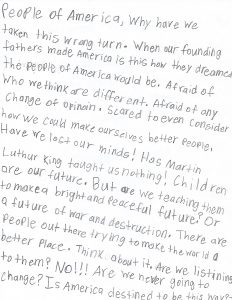 People of America, Why have we
taken this wrong turn. When our founding
fathers made America is this how they dreamed
the people of America would be. Afraid of
who we think are different. Afraid of any
change of opinain. Scared to even consider
how we could make ourselves better people.
Have we lost our minds! Has Martin
Luthur King taught us nothing! Children
are our future. But are we teaching them
to make a bright and peaceful future? Or
a future of war and destruction. There are
people out there trying to make the world a
better place. Think about it. Are we listining
to them? No!!! Are we never going to
change? Is America destined to be this